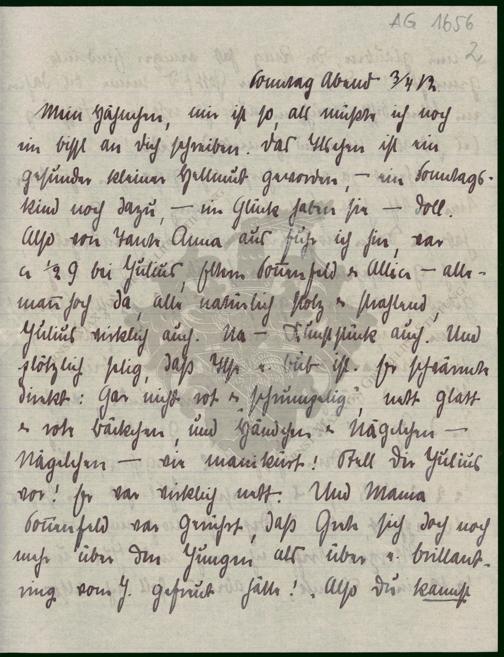 AG 1656
2
Sonntag Abend 3/4 12
Mein Hähnchen, mir ist so, als müßte ich noch
ein bissl an dich schreiben. Das Ilschen ist ein
gesunder kleiner Hellmut geworden, – ein Sonntags-
kind noch dazu, – ein Glück haben sie – doll.
Also von Tante Anna aus fuhr ich hin, war
ca 1/2 9 bei Julius, Eltern Sonnenfeld & Allica – alle-
mann hoch da, alle natürlich stolz & strahlend,
Julius wirklich auch. Na – Kunststück auch. Und
plötzlich selig, daß Ilse e. bub ist. Er schwärmte
direkt: Gar nicht rot & „schrumpelig“, nett glatt
& rote Bäckchen, und Händchen & Nägelchen –
Nägelchen – wie manikürt! Stell dir Julius
vor! Er war wirklich nett. Und Mama
Sonnenfeld war gerührt, daß Grete sich doch noch
mehr über den Jungen als über e. brillant-
ring vom J. gefreut hätte! Also du kannst